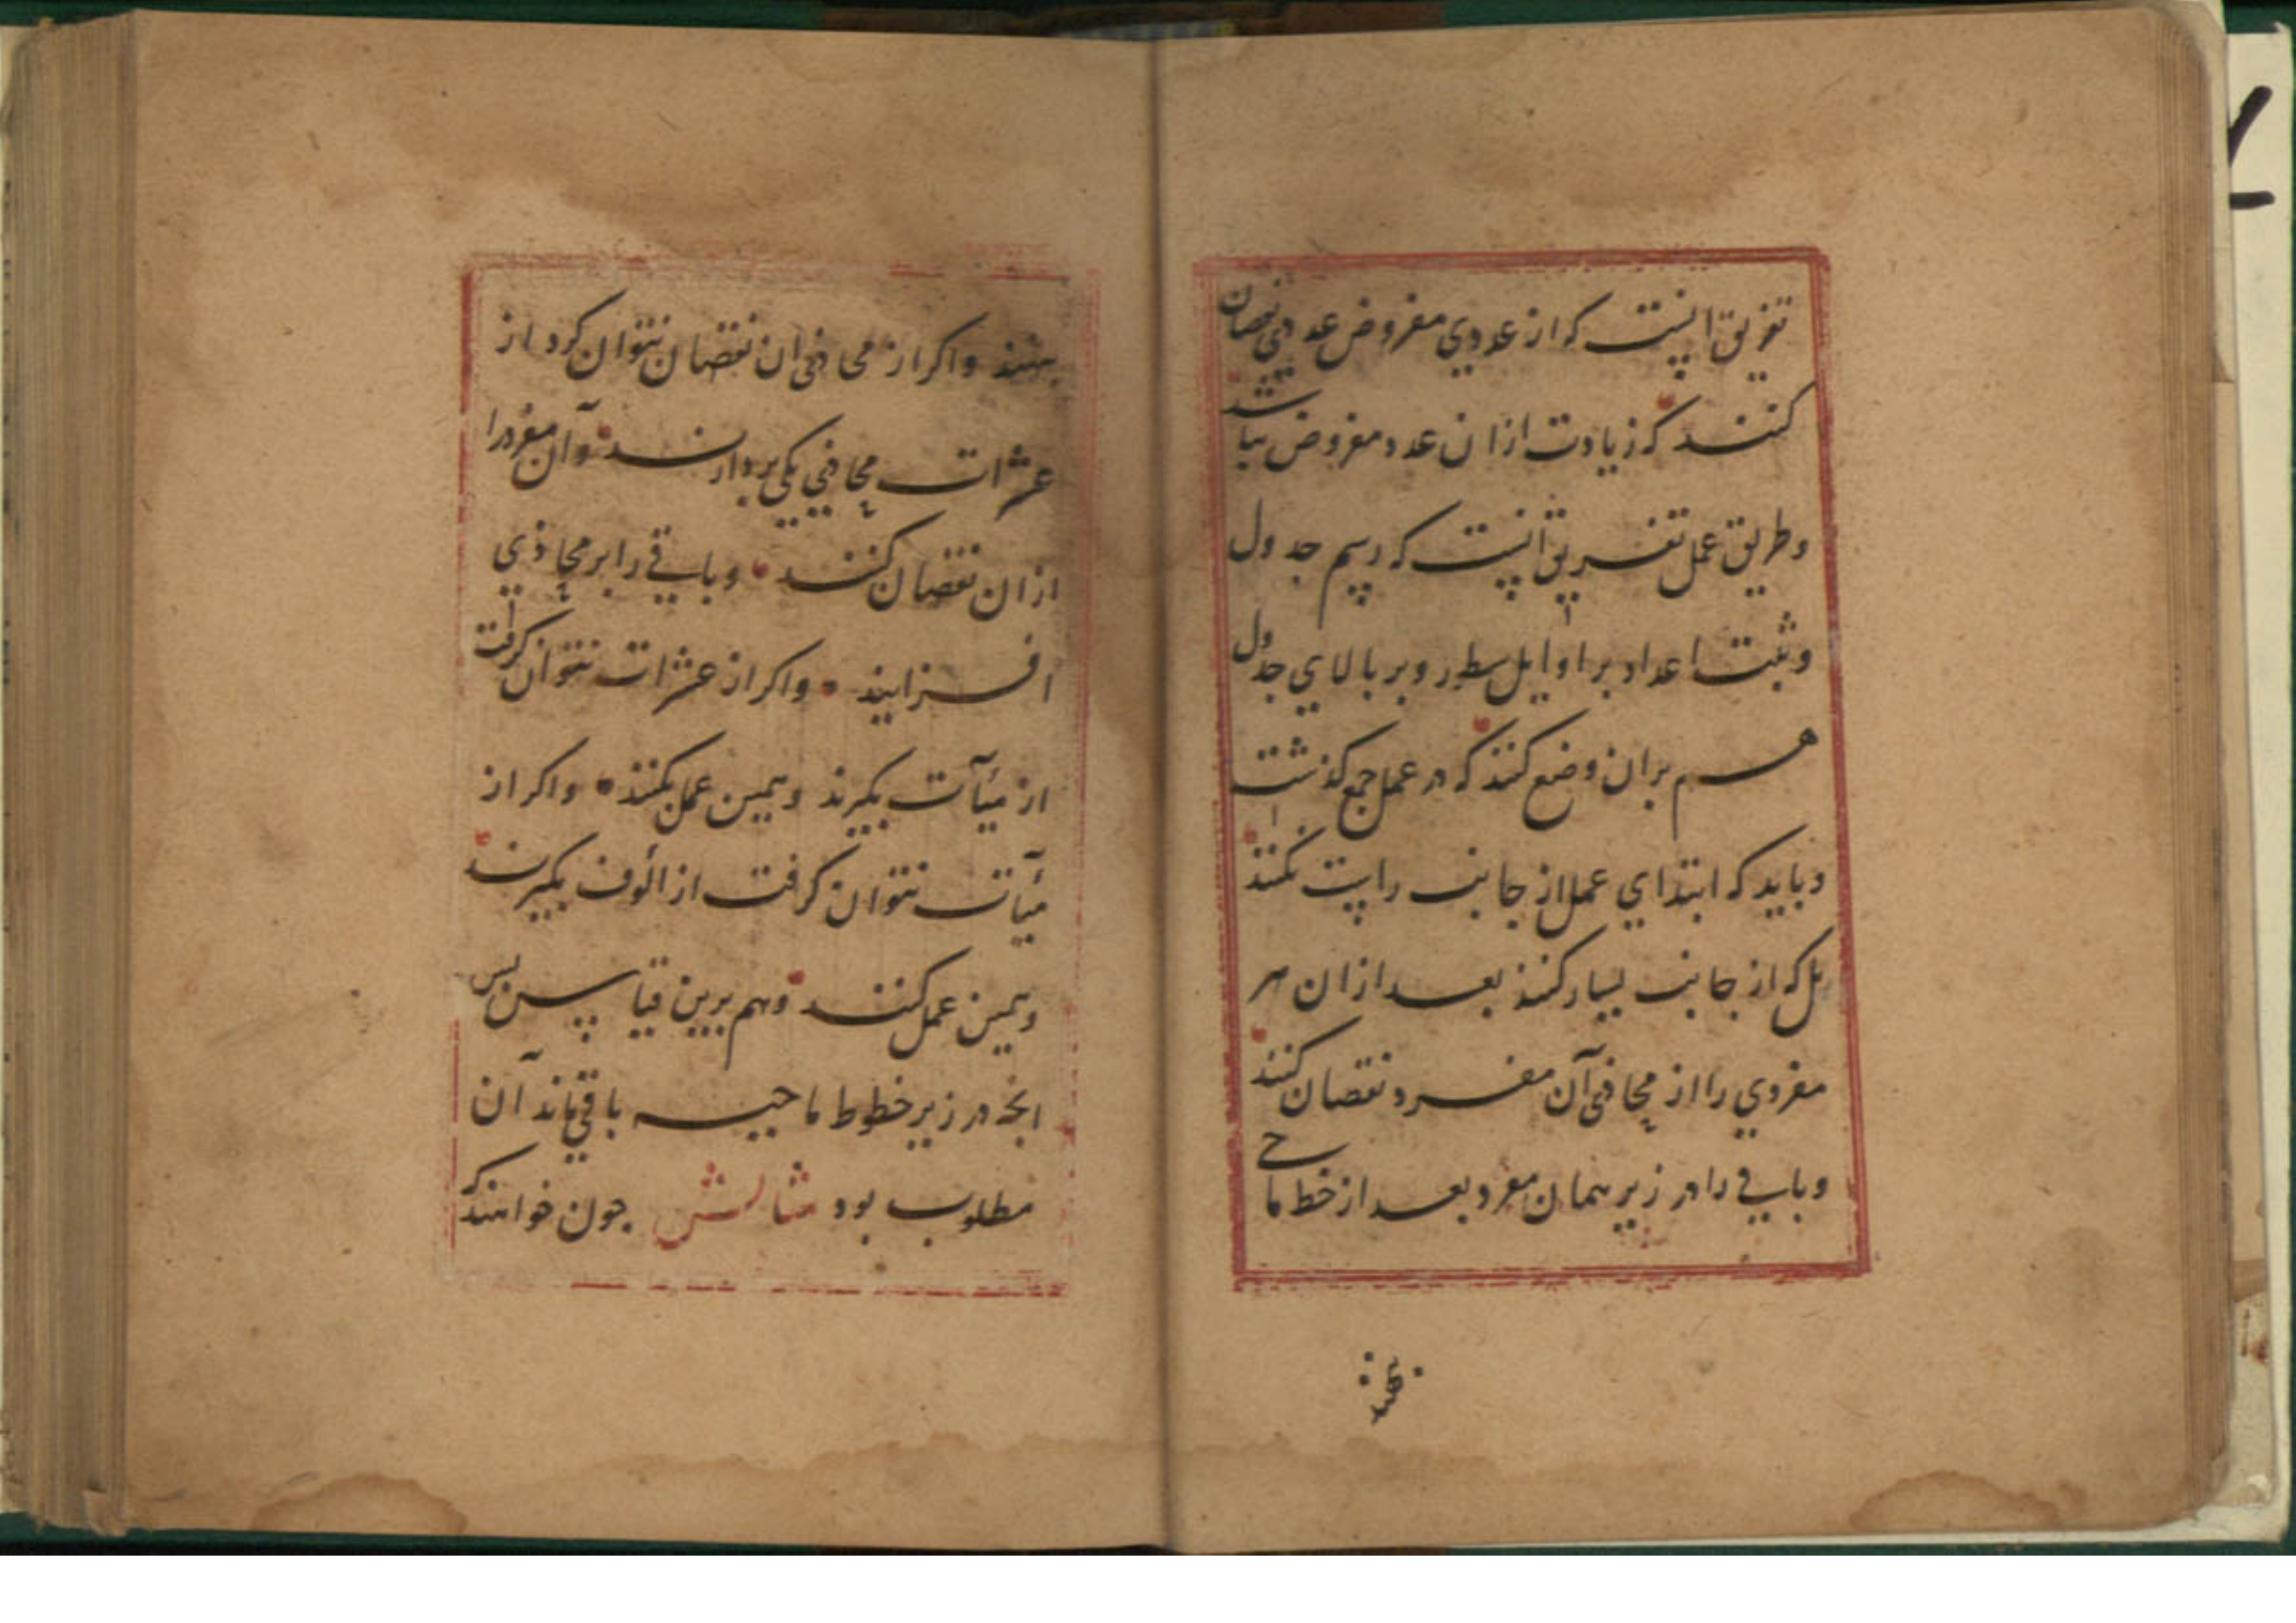 تفریق اینست که از عددی مفروض عددی نقصان
کنند که زیادت ازان عدد مفروض نباشد
وطریق عمل تفریق آنست که رسم جدول
وثبت اعداد بر اوایل سطور وبر بالای جدول
هم بران وضع کنند که در عمل جمع گذشت
وباید که ابتدای عمل از جانب راست نکنند
بل که از جانب یسار کنند بعد ازان هر
مفردی را از محاذی آن مفرد نقصان کنند
وباقی را در زیر همان مفرد بعد از خط ماحی
بنهند
بنهند واکر از محاذی ان نقصان نتوان کرد از
عشرات محاذی یکی بردارند وآن مفرد را
ازان نقصان کنند وباقی را بر محاذی
افزایند واکر از عشرات نتوان کرفت
از میآت بکیرند وهمین عمل بکنند واکر از
میآت نتوان کرفت از الوف بکیرند
وهمین عمل کنند وهم برین قیاس پس
انجه در زیر خطوط ماحیه باقی ماند آن
مطلوب بود مثالش جون خواهند که